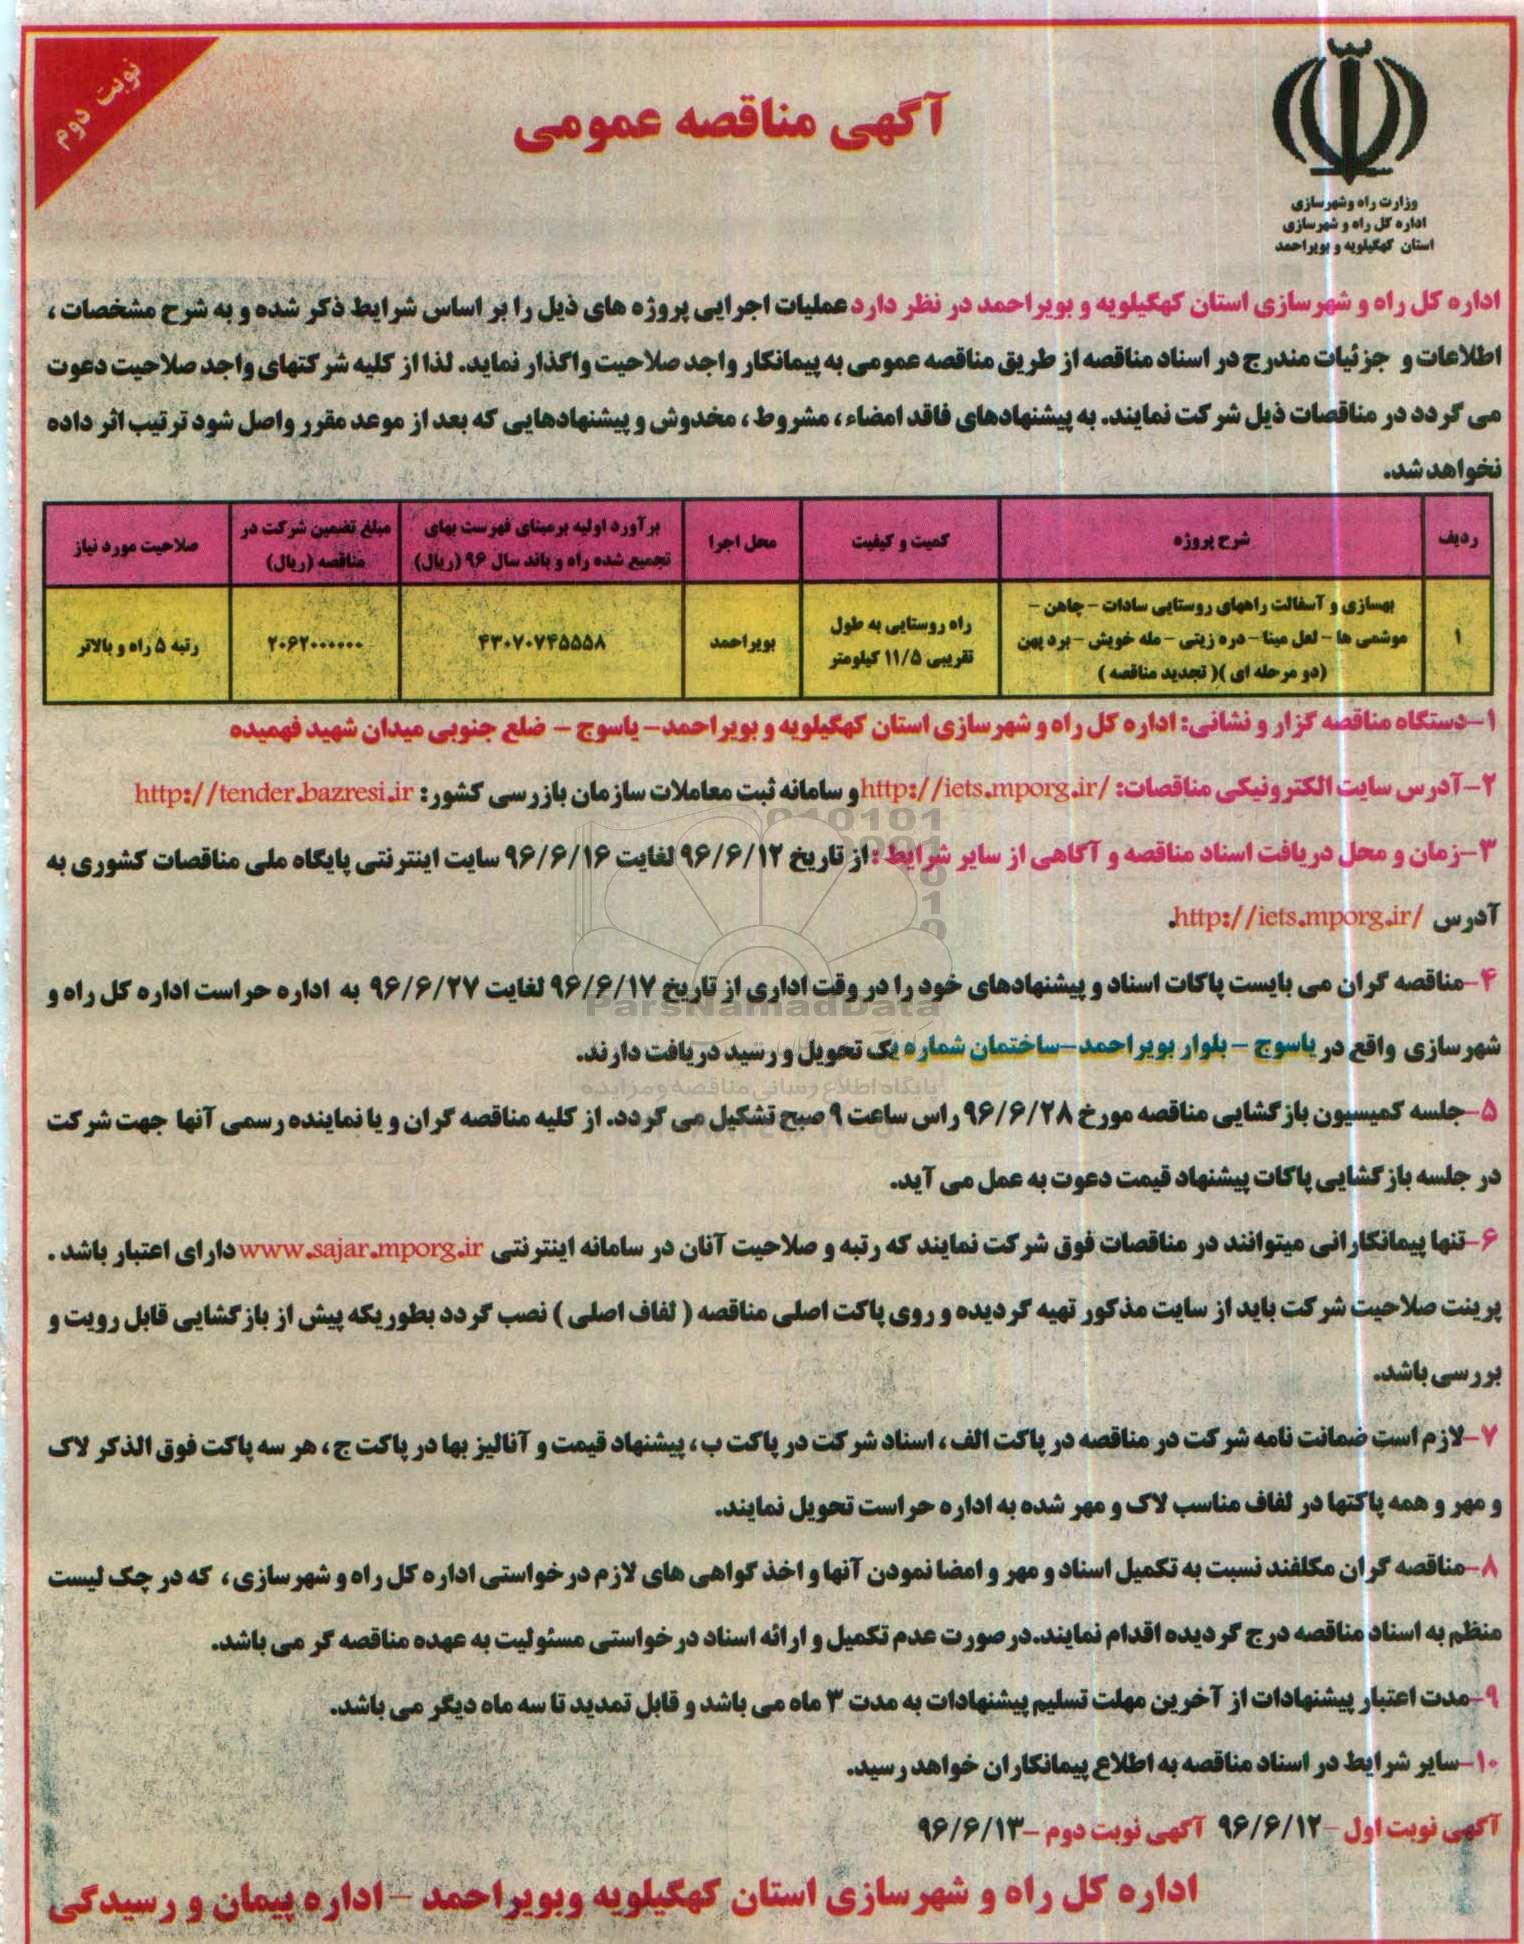 نوبت دوم
آگهی مناقصه عمومی
وزارت راه وشهرسازی
اداره کل راه و شهرسازی
استان کهگیلویه و بویراحمد
اداره کل راه و شهرسازی استان کهگیلویه و بویراحمد در نظر دارد عملیات اجرایی پروژه های ذیل را بر اساس شرایط ذکر شده و به شرح مشخصات ،
اطلاعات و جزئیات مندرج در اسناد مناقصه از طریق مناقصه عمومی به پیمانکار واجد صلاحیت واگذار نماید. لذا از کلیه شرکتهای واجد صلاحیت دعوت
می گردد در مناقصات ذیل شرکت نمایند. به پیشنهادهای فاقد امضاء ، مشروط ، مخدوش و پیشنهادهایی که بعد از موعد مقرر واصل شود ترتیب اثر داده
نخواهد شد.
ردیف
شرح پروژه
کمیت و کیفیت
محل اجرا
برآورد اولیه برمبنای فهرست بهای
تجمیع شده راه و باند سال ۹۶ (ریال)
مبلغ تضمین شرکت در
مناقصه (ریال)
صلاحیت مورد نیاز
۱
بهسازی و آسفالت راههای روستایی سادات - چاهن -
موشمی ها - لعل مینا - دره زیتی - مله خویش - برد پهن
(دو مرحله ای )( تجدید مناقصه )
راه روستایی به طول
تقریبی ۱۱/۵ کیلومتر
بویراحمد
۴۳۰۷۰۷۴۵۵۵۸
۲۰۶۲۰۰۰۰۰۰
رتبه ۵ راه و بالاتر
۱-دستگاه مناقصه گزار و نشانی: اداره کل راه و شهرسازی استان کهگیلویه و بویراحمد- یاسوج - ضلع جنوبی میدان شهید فهمیده
۲-آدرس سایت الکترونیکی مناقصات: http://iets.mporg.ir/ و سامانه ثبت معاملات سازمان بازرسی کشور: http://tender.bazresi.ir
۳-زمان و محل دریافت اسناد مناقصه و آگاهی از سایر شرایط :از تاریخ ۹۶/۶/۱۲ لغایت ۹۶/۶/۱۶ سایت اینترنتی پایگاه ملی مناقصات کشوری به
آدرس http://iets.mporg.ir/.
۴-مناقصه گران می بایست پاکات اسناد و پیشنهادهای خود را در وقت اداری از تاریخ ۹۶/۶/۱۷ لغایت ۹۶/۶/۲۷ به اداره حراست اداره کل راه و
ParsNamadData
شهرسازی واقع در یاسوج - بلوار بویراحمد-ساختمان شماره یک تحویل و رسید دریافت دارند.
پایگاه اطلاع رسانی مناقصه و مزایده
۵-جلسه کمیسیون بازگشایی مناقصه مورخ ۹۶/۶/۲۸ راس ساعت ۹ صبح تشکیل می گردد. از کلیه مناقصه گران و یا نماینده رسمی آنها جهت شرکت
در جلسه بازگشایی پاکات پیشنهاد قیمت دعوت به عمل می آید.
۶-تنها پیمانکارانی میتوانند در مناقصات فوق شرکت نمایند که رتبه و صلاحیت آنان در سامانه اینترنتی www.sajar.mporg.ir دارای اعتبار باشد .
پرینت صلاحیت شرکت باید از سایت مذکور تهیه گردیده و روی پاکت اصلی مناقصه ( لفاف اصلی ) نصب گردد بطوریکه پیش از بازگشایی قابل رویت و
بررسی باشد.
۷-لازم است ضمانت نامه شرکت در مناقصه در پاکت الف ، اسناد شرکت در پاکت ب ، پیشنهاد قیمت و آنالیز بها در پاکت ج ، هر سه پاکت فوق الذکر لاک
و مهر و همه پاکتها در لفاف مناسب لاک و مهر شده به اداره حراست تحویل نمایند.
۸-مناقصه گران مکلفند نسبت به تکمیل اسناد و مهر و امضا نمودن آنها و اخذ گواهی های لازم درخواستی اداره کل راه و شهرسازی ، که در چک لیست
منظم به اسناد مناقصه درج گردیده اقدام نمایند.درصورت عدم تکمیل و ارائه اسناد درخواستی مسئولیت به عهده مناقصه گر می باشد.
۹-مدت اعتبار پیشنهادات از آخرین مهلت تسلیم پیشنهادات به مدت ۳ ماه می باشد و قابل تمدید تا سه ماه دیگر می باشد.
۱۰-سایر شرایط در اسناد مناقصه به اطلاع پیمانکاران خواهد رسید.
آگهی نوبت اول - ۹۶/۶/۱۲ آگهی نوبت دوم -۹۶/۶/۱۳
اداره کل راه و شهرسازی استان کهگیلویه وبویراحمد - اداره پیمان و رسیدگی